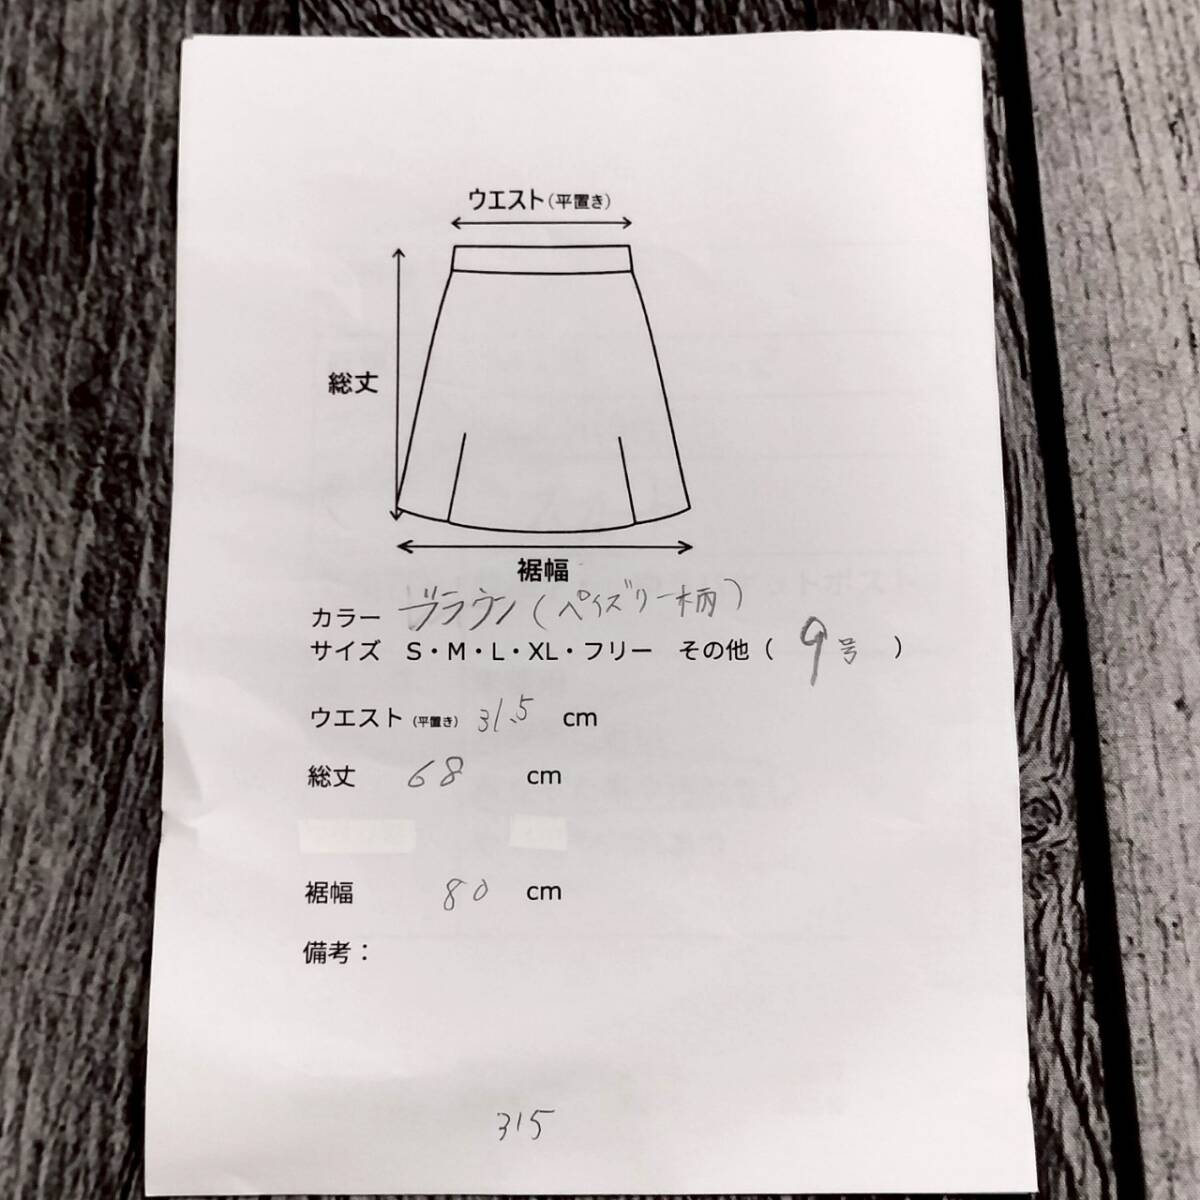 ウエスト(平置き)
総丈
裾幅
カラー ブラウン(ペイズリー柄)
サイズ S・M・L・XL・フリー その他( 9号 )
ウエスト(平置き) 31.5 cm
総丈 68 cm
裾幅 80 cm
備考:
315